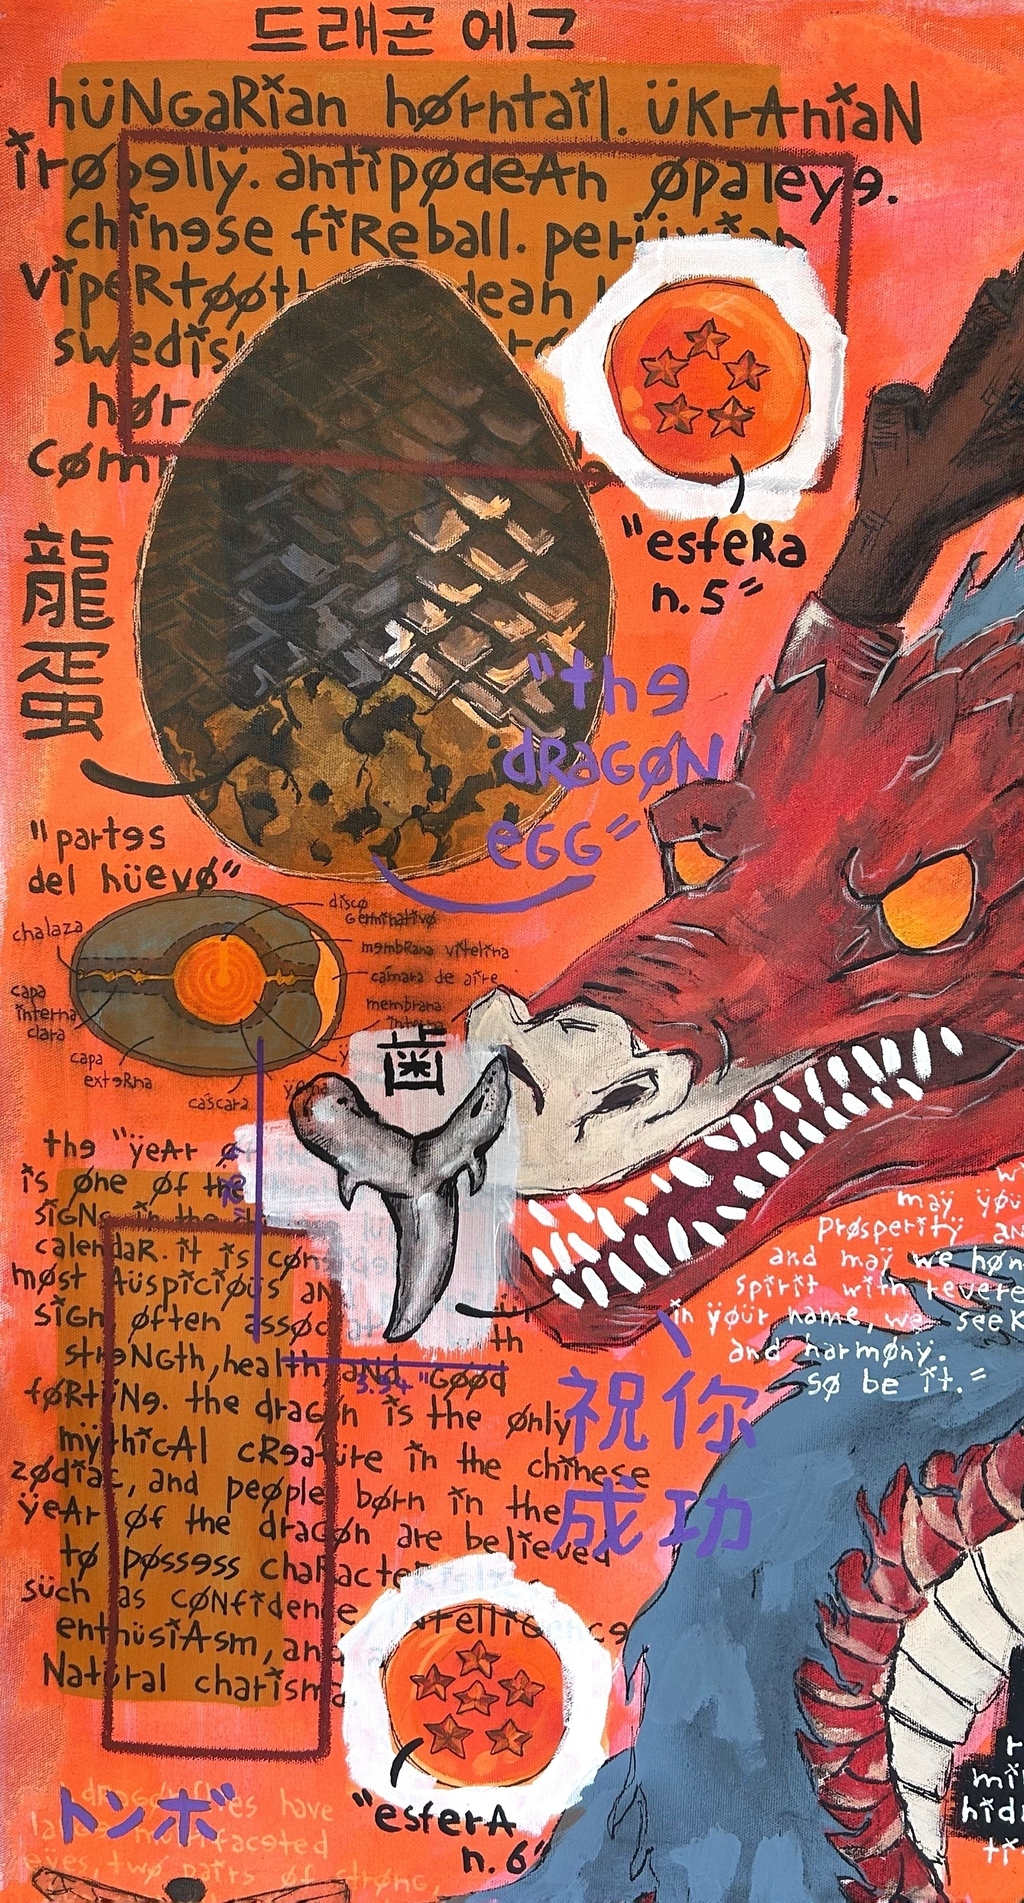 드래곤 에그
hüNGaRian hørntail. üKrAniaN
irøbelly. antipødeAn øpaleye.
chinese fiReball. perüvian
vipeRtøøth dean
swedis
hør
Cøm
"esfeRa
n. 5"
龍
蛋
"the
dRaGøN
eGG"
"partes
del hüevø"
chalaza
capa
interna
clara
capa
exteRna
cascara
discø
Germinativø
membRana vitelina
cámara de aire
membrana
interna
yema
齒
the "ÿeAr øf
is øne øf the
SiGNs in the
calendaR. it is cøns
møst Aüspiciøüs an
siGn øften assøc
th
streNGth, health aNd "Gøød
førtüNe. the dragøn is the ønly
mÿthicAl cReatüre in the chinese
zødiac, and peøple børn in the
ÿeAr øf the dragøn are believed
tø pøssess chaRacte
süch as cøNfidence, intelliGence
enthüsiAsm, and
Natüral charisma
祝你
成功
may ÿøü
prøsperitÿ an
and maÿ we høn
spirit with revere
in ÿøür name, we seek
and harmønÿ.
sø be it."
"esferA
n. 6"
トンボ
dragønflies have
large multifaceted
eÿes, twø pairs øf strøng,
mi
hid
ti